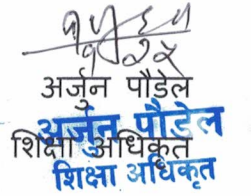 अर्जुन पौडेल
अर्जुन पौडेल
शिक्षा अधिकृत
शिक्षा अधिकृत